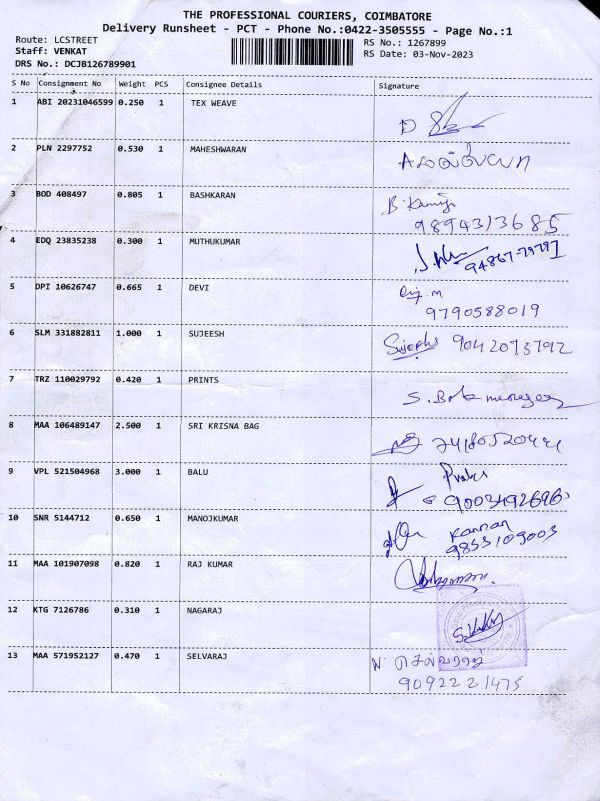 THE PROFESSIONAL COURIERS, COIMBATORE
Delivery Runsheet - PCT - Phone No.:0422-3505555 - Page No.:1
Route: LCSTREET
RS No.: 1267899
Staff: VENKAT
RS Date: 03-Nov-2023
DRS No.: DCJB126789901
S No Consignment No Weight PCS Consignee Details Signature
1 ABI 20231046599 0.250 1 TEX WEAVE
2 PLN 2297752 0.530 1 MAHESHWARAN
3 BOD 408497 0.805 1 BASHKARAN
9894313685
4 EDQ 23835238 0.300 1 MUTHUKUMAR
94867-79797
5 DPI 10626747 0.665 1 DEVI
9790588019
6 SLM 331882811 1.000 1 SUJEESH
9042073792
7 TRZ 110029792 0.420 1 PRINTS
8 MAA 106489147 2.500 1 SRI KRISNA BAG
9 VPL 521504968 3.000 1 BALU
10 SNR 5144712 0.650 1 MANOJKUMAR
Kannan
11 MAA 101907098 0.820 1 RAJ KUMAR
12 KTG 7126786 0.310 1 NAGARAJ
13 MAA 571952127 0.470 1 SELVARAJ
9092221475